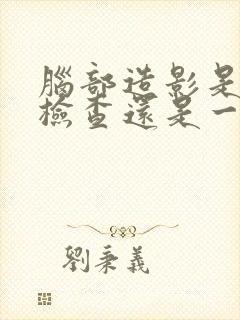 腦部造影是
檢查還是一
劉秉義